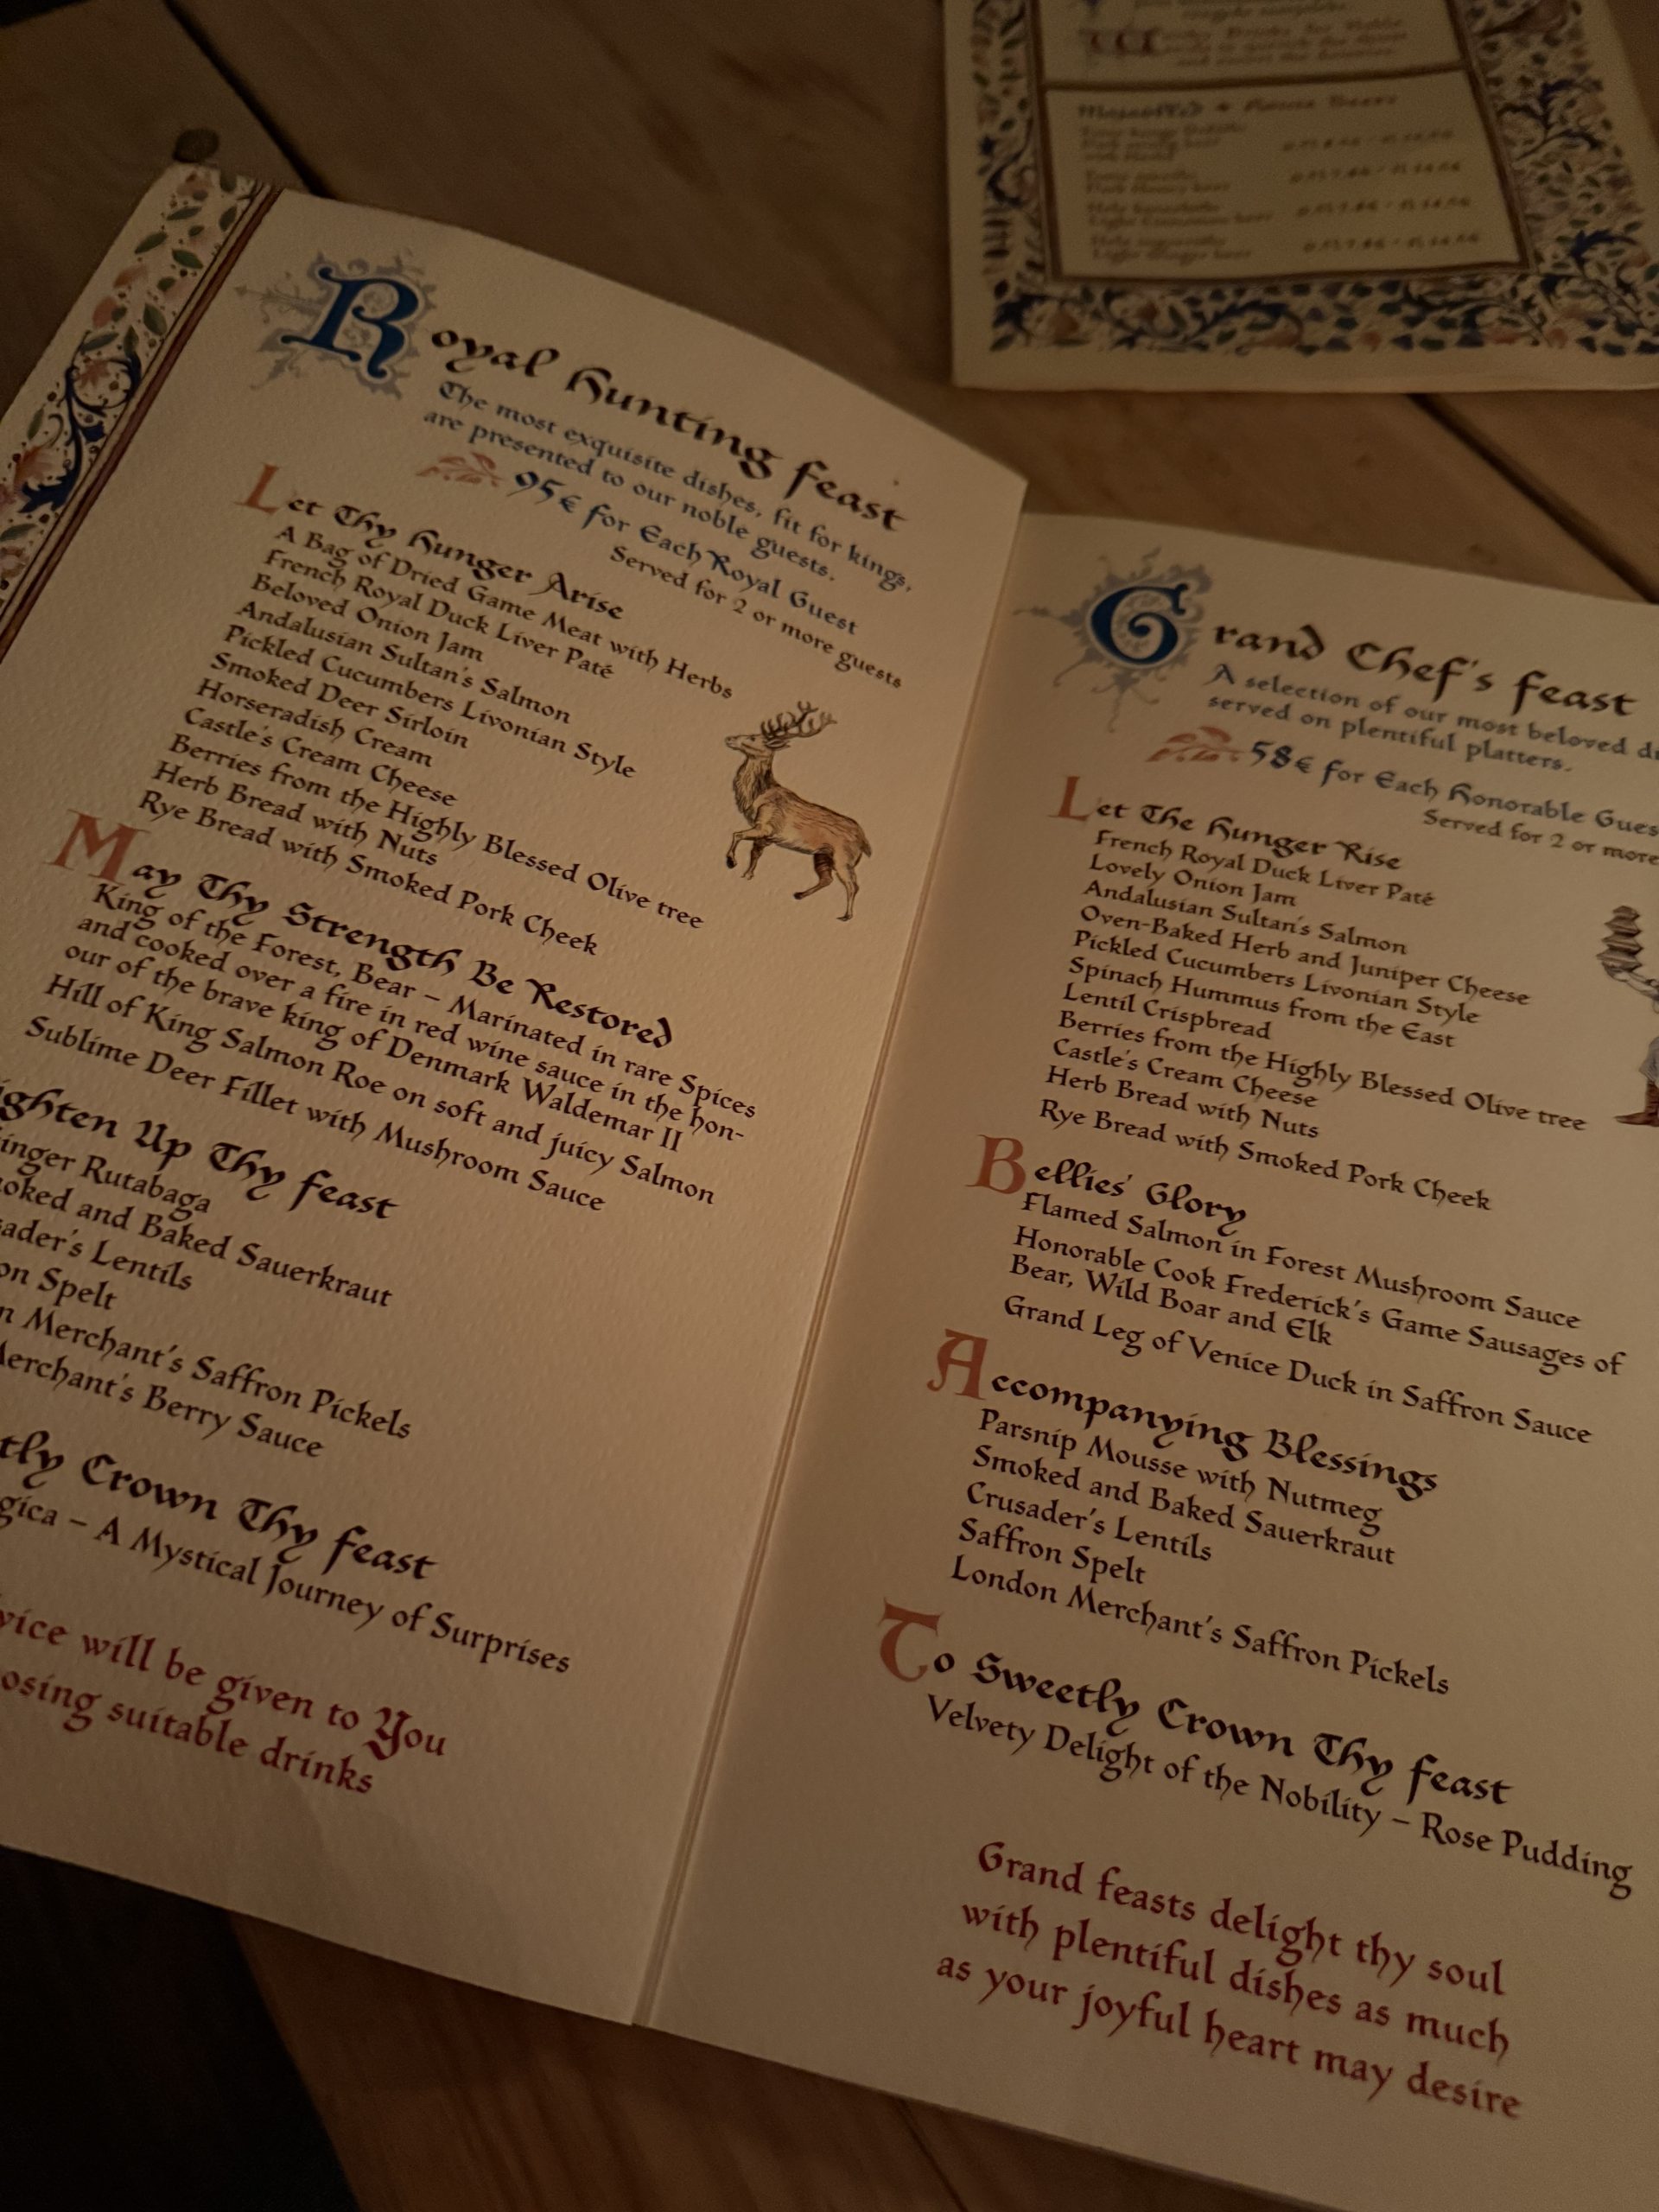 Royal Hunting feast
The most exquisite dishes, fit for kings,
are presented to our noble guests.
95€ for Each Royal Guest
Served for 2 or more guests
Let Thy Hunger Arise
A Bag of Dried Game Meat with Herbs
French Royal Duck Liver Paté
Beloved Onion Jam
Andalusian Sultan's Salmon
Pickled Cucumbers Livonian Style
Smoked Deer Sirloin
Horseradish Cream
Castle's Cream Cheese
Berries from the Highly Blessed Olive tree
Herb Bread with Nuts
Rye Bread with Smoked Pork Cheek
May Thy Strength Be Restored
King of the Forest, Bear – Marinated in rare Spices
and cooked over a fire in red wine sauce in the hon-
our of the brave king of Denmark Waldemar II
Hill of King Salmon Roe on soft and juicy Salmon
Sublime Deer Fillet with Mushroom Sauce
Up Thy feast
Rutabaga
and Baked Sauerkraut
Lentils
Spelt
Merchant's Saffron Pickels
Merchant's Berry Sauce
Crown Thy feast
– A Mystical Journey of Surprises
will be given to You
suitable drinks
Grand Chef's feast
A selection of our most beloved
served on plentiful platters.
58€ for Each Honorable
Served for 2 or more
Let The Hunger Rise
French Royal Duck Liver Paté
Lovely Onion Jam
Andalusian Sultan's Salmon
Oven-Baked Herb and Juniper Cheese
Pickled Cucumbers Livonian Style
Spinach Hummus from the East
Lentil Crispbread
Berries from the Highly Blessed Olive tree
Castle's Cream Cheese
Herb Bread with Nuts
Rye Bread with Smoked Pork Cheek
Bellies' Glory
Flamed Salmon in Forest Mushroom Sauce
Honorable Cook Frederick's Game Sausages of
Bear, Wild Boar and Elk
Grand Leg of Venice Duck in Saffron Sauce
Accompanying Blessings
Parsnip Mousse with Nutmeg
Smoked and Baked Sauerkraut
Crusader's Lentils
Saffron Spelt
London Merchant's Saffron Pickels
To Sweetly Crown Thy feast
Velvety Delight of the Nobility – Rose Pudding
Grand feasts delight thy soul
with plentiful dishes as much
as your joyful heart may desire